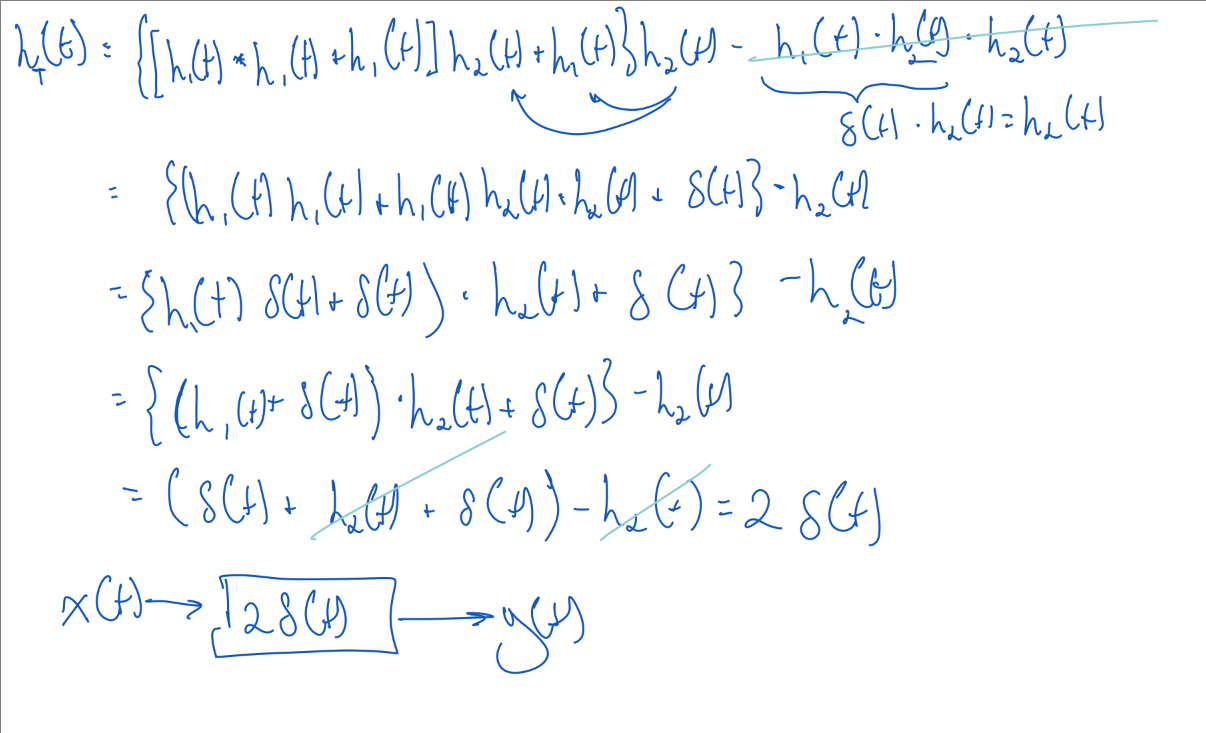 h_T(t) = {[h₁(t) * h₁(t) + h₁(t)] h₂(t) + h₁(t)} h₂(t) - h₁(t) · h₂(t) · h₂(t)
δ(t) · h₂(t) = h₂(t)
= {(h₁(t) h₁(t) + h₁(t) h₂(t) · h₂(t) + δ(t)} - h₂(t)
= {h₁(t) δ(t) + δ(t)) · h₂(t) + δ(t)} - h₂(t)
= {(h₁(t) + δ(t)) · h₂(t) + δ(t)} - h₂(t)
= (δ(t) + h₂(t) + δ(t)) - h₂(t) = 2 δ(t)
x(t) → 2δ(t) → y(t)